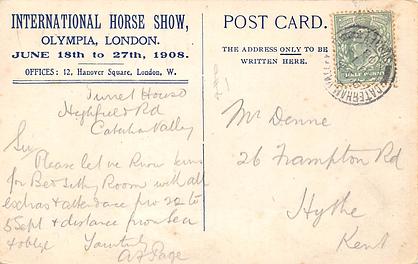 INTERNATIONAL HORSE SHOW,
OLYMPIA, LONDON.
JUNE 18th to 27th, 1908.
OFFICES: 12, Hanover Square, London, W.
POST CARD.
THE ADDRESS ONLY TO BE
WRITTEN HERE.
HALF PENNY
CATERHAM
House
Highfield Rd
Valley
Sir
Please let me know terms
for Bed Sitting Room with all
extras & attendance for 22 to
5 Sept & distance from Sea
& oblige Yours truly
A F Page
Mr Denne
26 Frampton Rd
Hythe
Kent